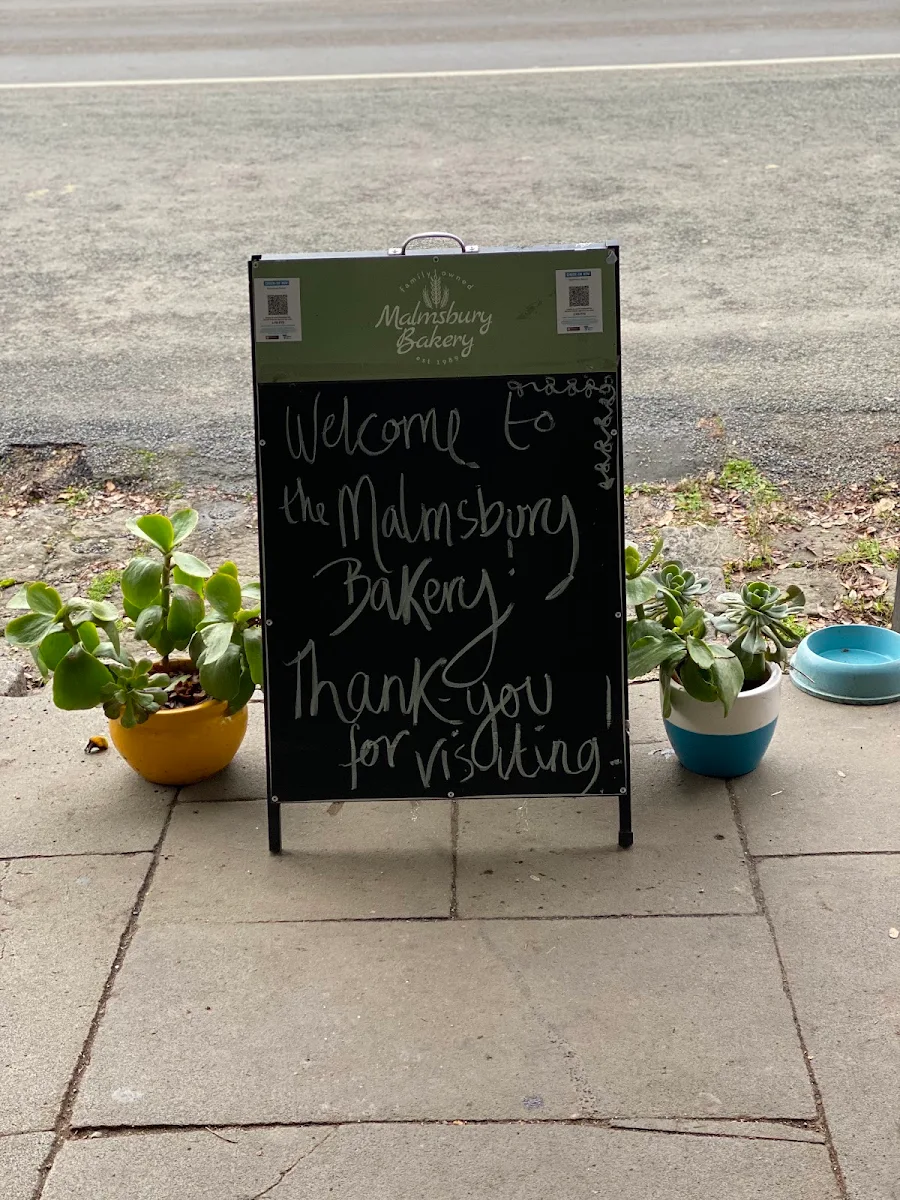 family owned
Malmsbury
Bakery
est 1989
Welcome to
the Malmsbury
Bakery.
Thank-you
for visiting!